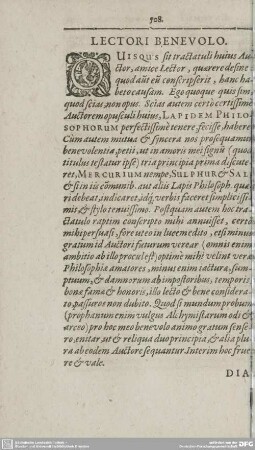 508.
LECTORI BENEVOLO.
QUISQUS sit tractatuli huius Au-
ctor, amice Lector, quærere desine
quod aūt eū conscripserit, hanc ha-
beto causam. Ego quoque quis sim,
quod scias, non opus. Scias autem certò certissimè
Auctorem opusculi huius, LAPIDEM PHILO-
SOPHORUM perfectissimè tenere, fecisse, habere
Cum autem mutua & sincera nos prosequamur
benevolentiæ, petii, ut in amoris mei signū (quod
titulus testatur ipse) tria principia prima discute-
ret, MERCURIUM nempe, SULPHUR & SAL
& si in iis
ri debeat, indicaret, idq́, verbis faceret simplicissi-
mis & stylo tenuissimo. Postquam autem hoc tra-
ctatulo raptim conscripto mihi annuisset, certò
mihi persuasi, fore ut eo in lucem edito, etsi minus
gratum id Auctori futurum verear (omnis enim
ambitio ab illo procul est) optimè mihi velint veræ
Philosophiæ amatores, minus enim iacturæ, sum-
ptuum, & damnorum ab impostoribus, temporis,
bonæ famæ & honoris, illo lecto & bene considera-
to, passuros non dubito. Quod si mundum probum
(prophanum enim vulgus Alchymistarum odi &
arceo) pro hoc meo benevolo animo gratum sense-
ro, enitar, ut & reliqua duo principia, & alia plu-
ra ab eodem Auctore sequantur. Interim hoc frue-
re & vale.
DIA